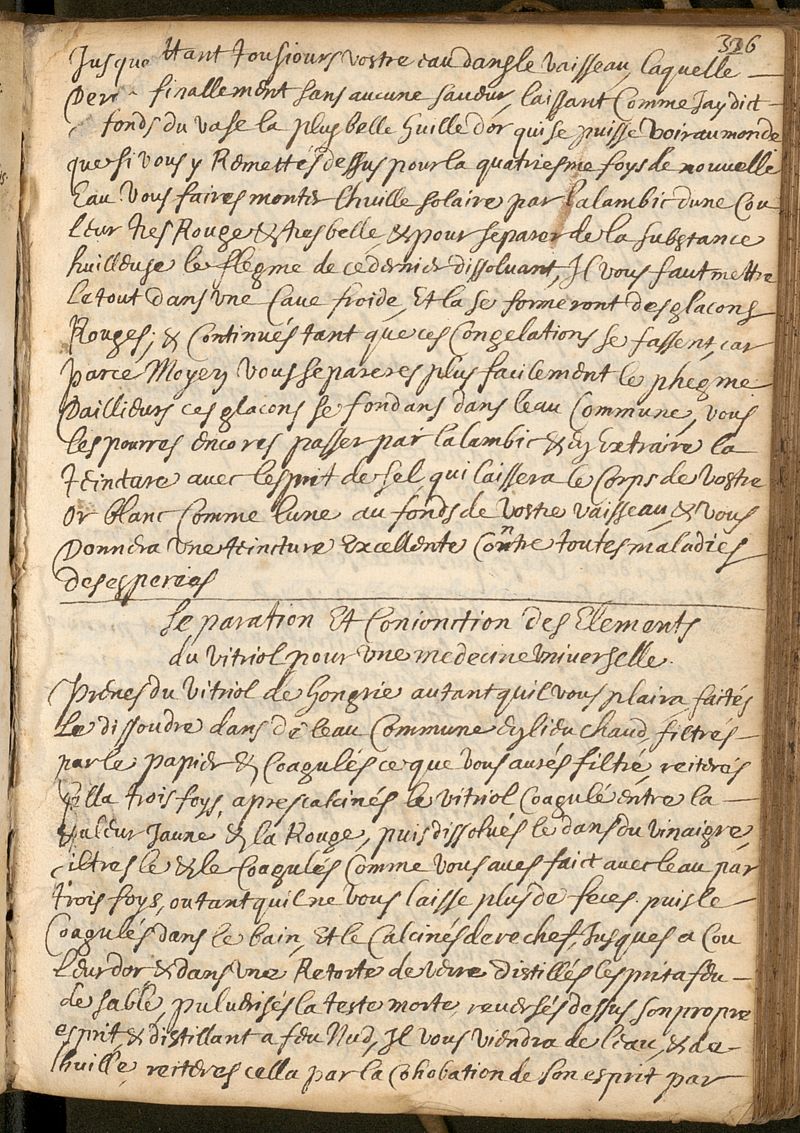 336
Jusqu ttant tousiours vostre eau dans le vaisseau, laquelle
finallement sans aucune saveur, laissant comme Jay dict
fonds du vase la plus belle huille dor qui se puisse voir au monde
que si vous y Remettés dessus pour la quatriesme foys de nouvelle
Eau Vous faires monter l'huille solaire par lalambic dune Cou
leur tres Rouge & tresbelle, & pour separer de la substance
huilleuse le flegme de ce dernier dissoluant, Jl vous faut mettre
le tout dans vne Cave froide, Et la se formeront des glacons
Rouges; & Continués tant que ces Congelations se fassent, car
par ce Moyen Vous separeres plus facilement le phegme
Dailleurs ces glacons se fondans dans leau Commune, vous
les pourres encores passer par lalambic & en Extraire la
teincture avec lesprit de sel qui laissera le Corps de Vostre
Or blanc Comme lune au fonds de Vostre vaisseau, & vous
Donnera Vne teincture Excellente Contre toutes maladies
desesperees
Separation Et Conionction des Elements
du Vitriol pour vne medecine Vniverselle.
Prenes du Vitriol de hongrie autant quil vous plaira faites
Le dissoudre dans de leau Commune en lieu chaud, filtrés
par le papier & Coagulés ce que Vous aurés filtré, reiterés
cella trois foys, apres calcinés le vitriol Coagulé entre la
couleur Jaune & la Rouge, puis dissolués le dans du vinaigre,
filtres le & le Coagulés Comme vous aues faict avec leau par
trois foys, ou tant quil ne Vous laisse plus de feces. puis le
Coagulés dans le bain, Et le Calcinés derechef, Jusques a Cou
leur dor & dans vne Retorte de verre distillés lesprit a feu
de sable, puluerisés la teste morte, reuersés dessus son propre
esprit, & distillant a feu Nud, Jl vous viendra de l'eau, & de
lhuille, reiteres cella par la Cohobation de son esprit par